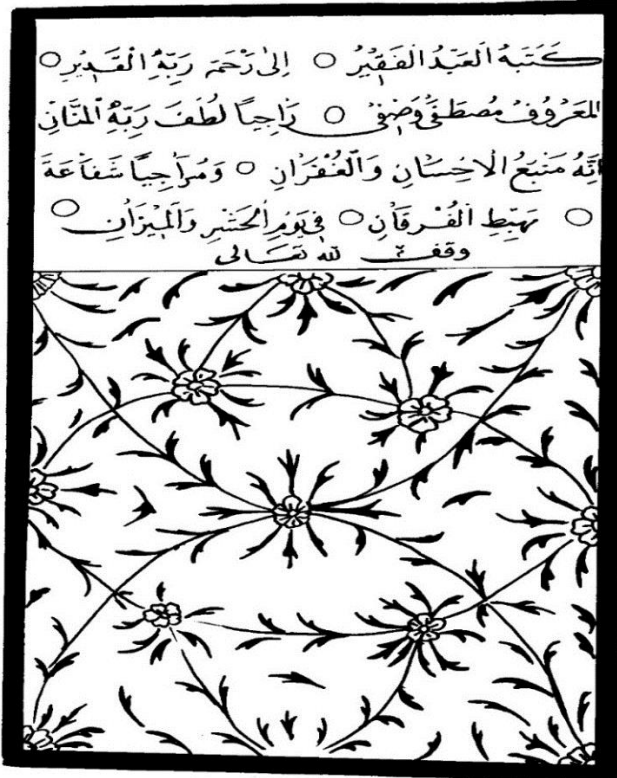 كَتَبَهُ الْعَبْدُ الْفَقِيْرُ ○ إِلٰى رَحْمَةِ رَبِّهِ الْقَدِيْرِ ○
الْمَعْرُوفُ مُصْطَفٰى وَصْفِي ○ رَاجِياً لُطْفَ رَبِّهِ الْمَنَّانِ
اِنَّهُ مَنْبَعُ الْاِحْسَانِ وَالْغُفْرَانِ ○ وَمُرَاجِياً شَفَاعَةَ
○ مَهْبِطِ الْفُرْقَانِ ○ فِي يَوْمِ الْحَشْرِ وَالْمِيْزَانِ ○
وقف لله تعالى